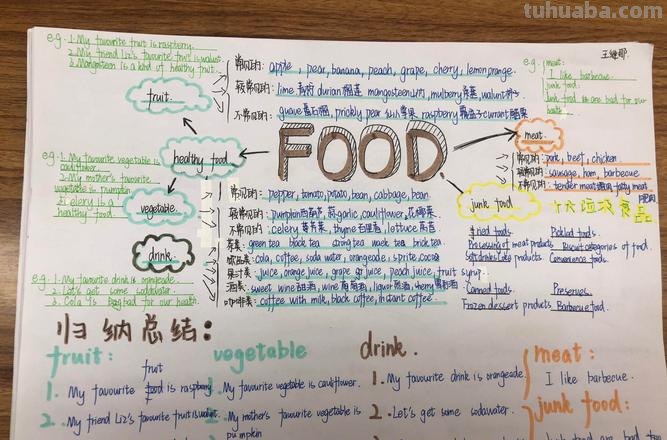 tuhuaba.com
e.g. 1. My favourite fruit is raspberry.
2. My friend Liz's favourite fruit is walnut.
3. Mangosteen is a kind of healthy fruit.
常见的: apple, pear, banana, peach, grape, cherry, lemon, orange.
较常见的: lime 青柠 durian 榴莲 mangosteen 山竹, mulberry 桑葚, walnut 核
不常见的: guava 番石榴, prickly pear 仙人掌果 raspberry 覆盆子 currant 醋栗
e.g. meat:
I like barbecue.
junk food:
Junk food is are bad for our
health.
fruit.
healthy food.
vegetable.
drink.
FOOD.
meat.
junk food
e.g. 1. My favourite vegetable is
cauliflower.
2. My mother's favourite
vegetable is pumpkin
3. Celery is a
healthy food.
常见的: pork, beef, chicken
较常见的: sausage, ham, barbecue
不常见的: tender meat 嫩肉 fatty meat 肥肉
常见的: pepper, tomato, potato, bean, cabbage, bean.
较常见的: pumpkin 西葫芦, 蒜 garlic, cauliflower, 花椰菜
不常见的: celery 芹菜, thyme 百里香, lettuce 莴苣
茶类: green tea black tea oolong tea brick tea
cola, coffee, soda water, orangeade, sprite, cocoa
果汁类: juice, orange juice, grape juice, peach juice, fruit syrup.
酒类: sweet wine 甜酒, wine 葡萄酒, liquor 烈酒, sherry 雪利酒
咖啡类: coffee with milk, black coffee, instant coffee.
十大垃圾食品
Fried foods Pickled foods.
Processing of meat products Biscuit categories of food.
Soft drinks Coke products Convenience foods.
Canned foods Preserves
Frozen dessert products Barbecue food.
e.g. 1. My favourite drink is orangeade.
2. Let's get some sodawater.
3. Cola is bad for our health.
归纳总结:
fruit: vegetable drink. meat:
fruit
1. My favourite food is raspberry. 1. My favourite vegetable is cauliflower. 1. My favourite drink is orangeade. I like barbecue.
2. My friend Liz's favourite fruit is walnut. 2. My mother's favourite vegetable is 2. Let's get some sodawater. junk food:
pumpkin